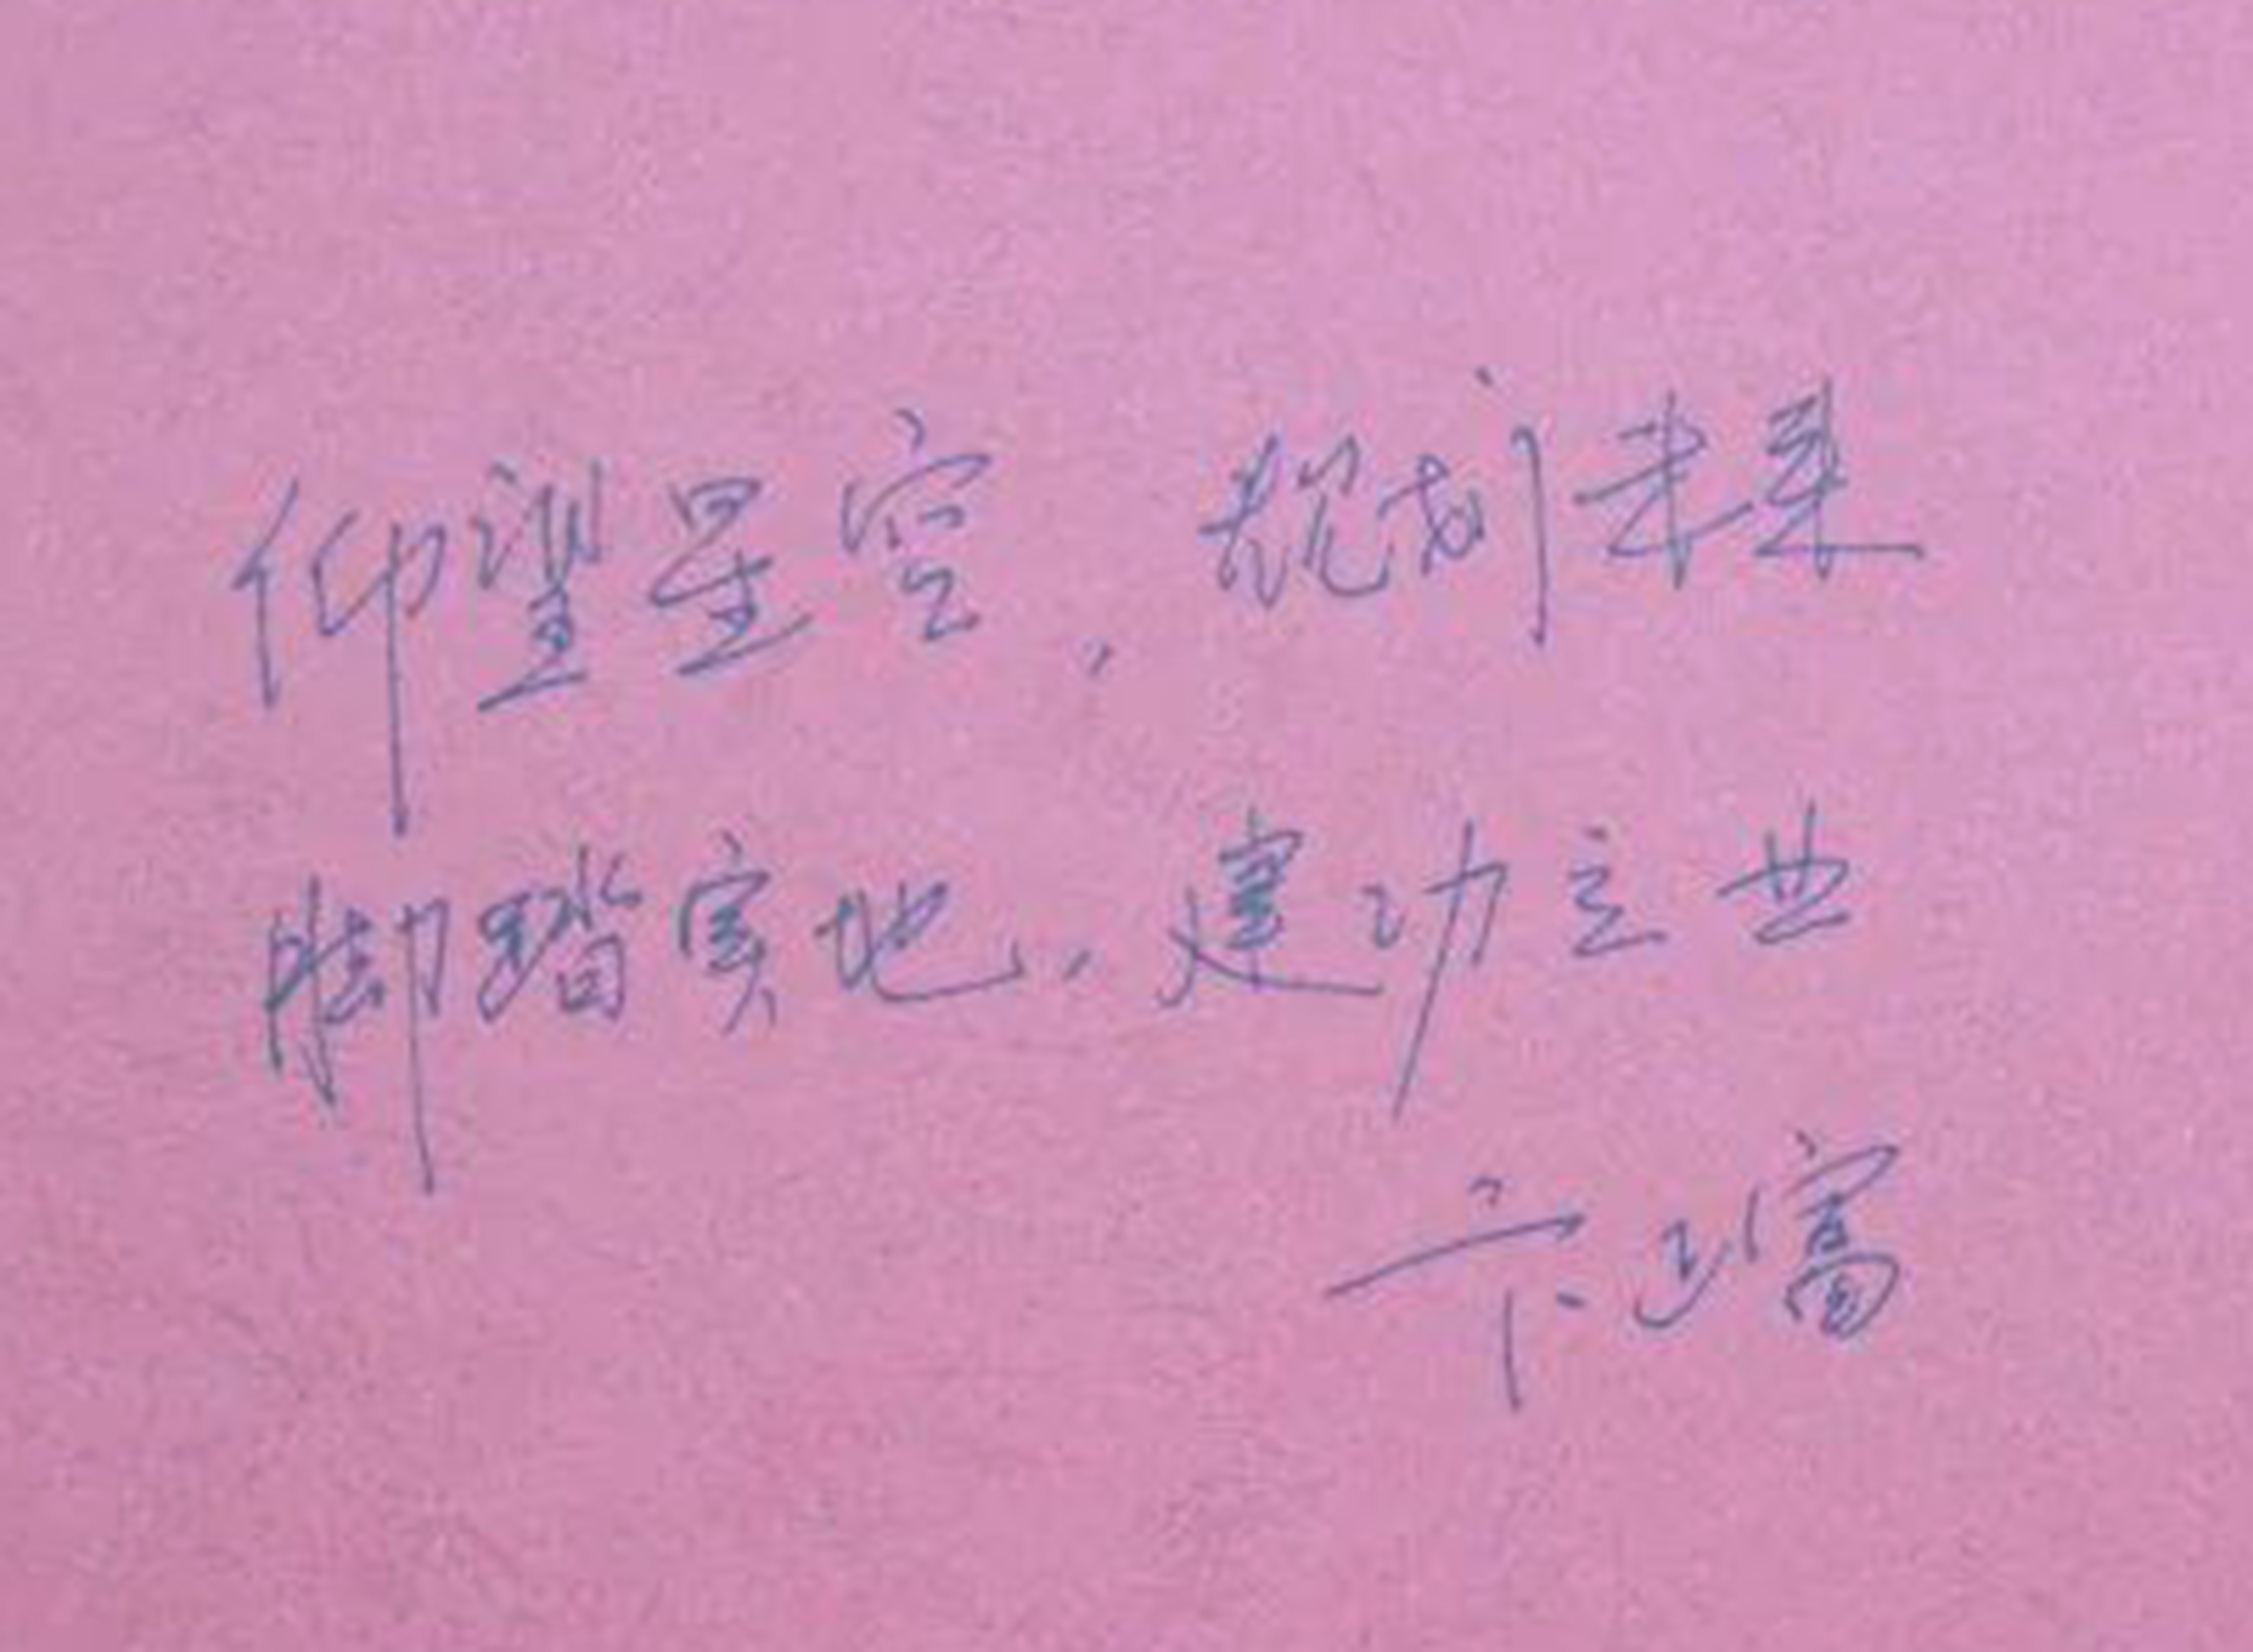 仰望星空，规划未来
脚踏实地，建功立业
卞正富